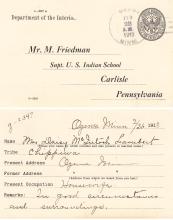 Department of the Interior,
FEB
1913
MINN.
Mr. M. Friedman
Supt. U. S. Indian School
Carlisle
Pennsylvania
Ogema Minn 2/26 1913
Name Mrs. Daisy McIntosh Lambert
Tribe Chippewa
Present Address Ogema Minn
Former Address
Present Occupation Housewife
Remarks: In good circumstances
and surroundings.